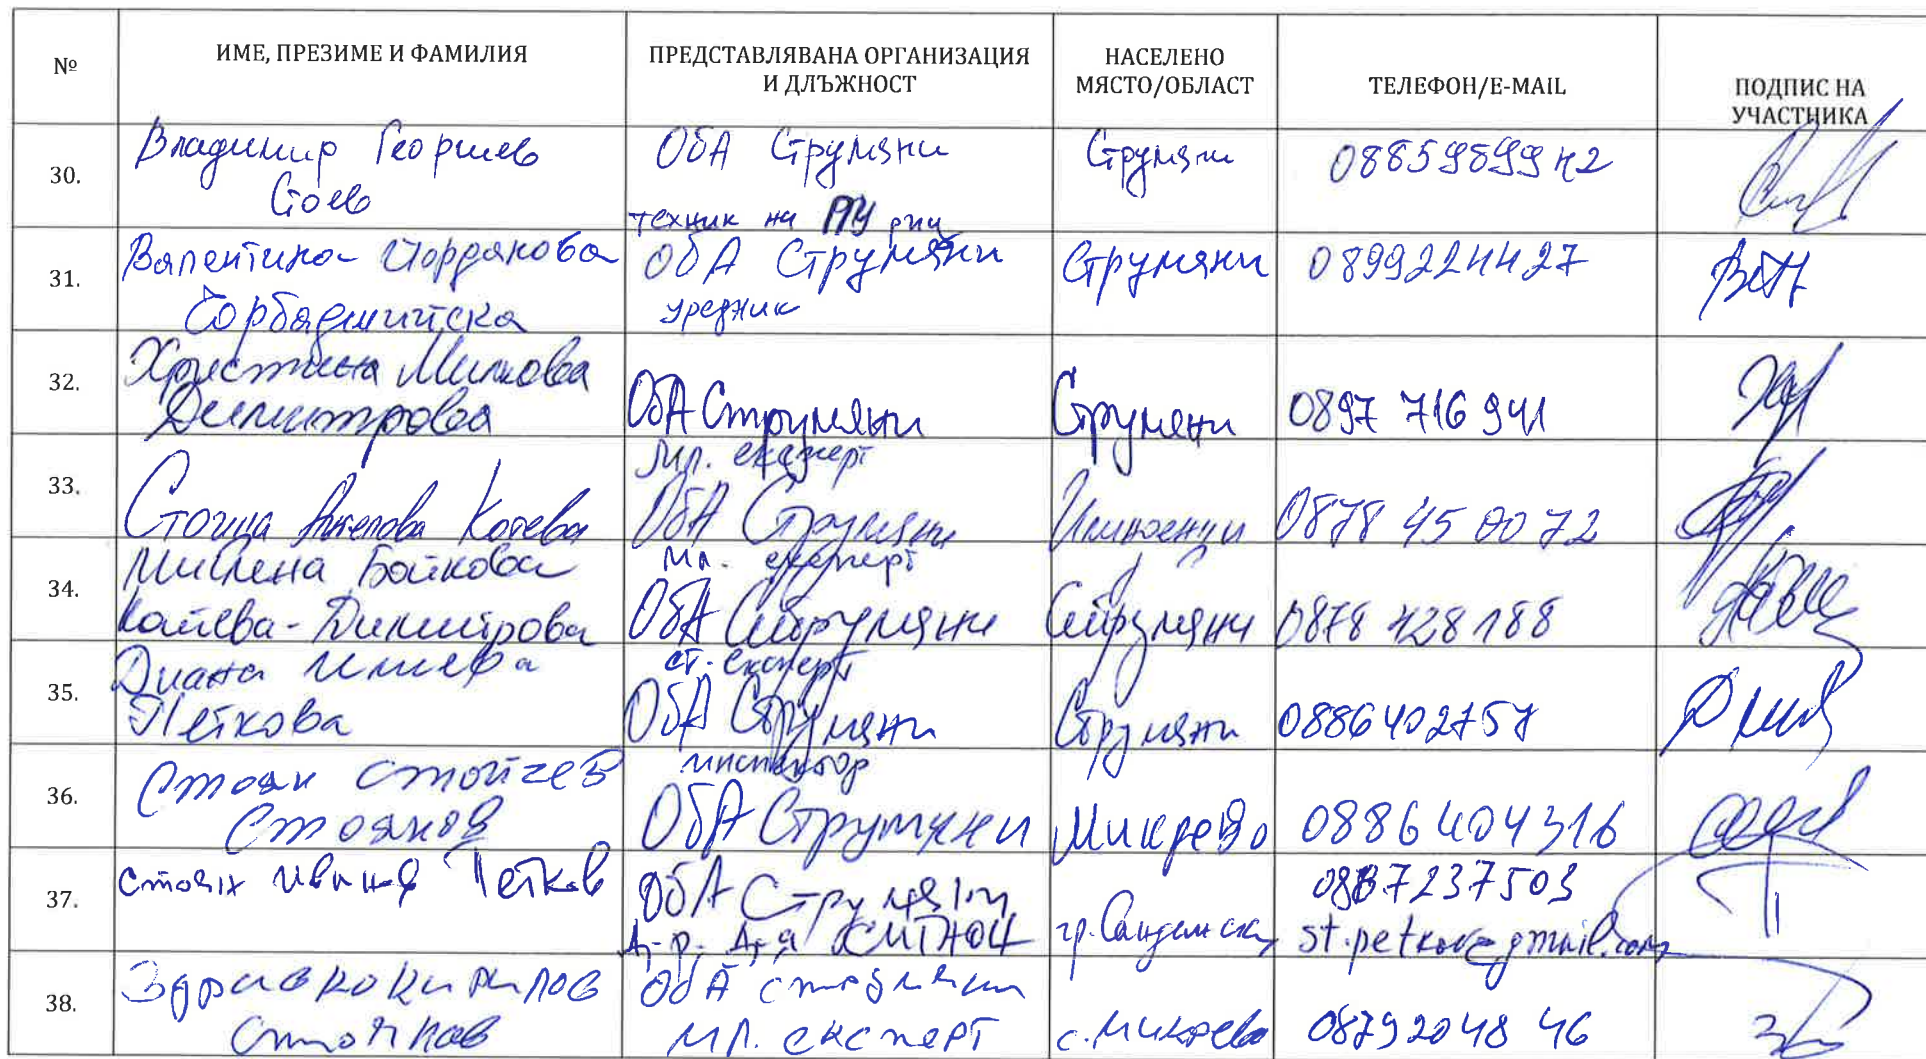 №
ИМЕ, ПРЕЗИМЕ И ФАМИЛИЯ
ПРЕДСТАВЛЯВАНА ОРГАНИЗАЦИЯ
И ДЛЪЖНОСТ
НАСЕЛЕНО
МЯСТО/ОБЛАСТ
ТЕЛЕФОН/E-MAIL
ПОДПИС НА
УЧАСТНИКА
30.
Владимир Георгиев
Стоев
ОбА Струмяни
техник на
Струмяни
0885989942
31.
Валентина Йорданова
Чорбаджийска
ОбА Струмяни
уредник
Струмяни
0899224427
32.
Христина Милкова
Димитрова
ОбА Струмяни
мл. експерт
Струмяни
0897 716 941
33.
Стойца Ангелова Котева
ОбА Струмяни
мл. експерт
0878 45 00 72
34.
Милена Бойкова
Димитрова
ОбА Струмяни
ст. експерт
Струмяни
0878 428 188
35.
Диана Илиева
Петкова
ОбА Струмяни
инспектор
Струмяни
0886402757
36.
Стоян Стойчев
Стоянов
ОбА Струмяни
Микрево
0886404316
37.
Стоян Иванов Петков
ОбА Струмяни
гр. Сандански
0887237503
st.petkov@gmail.com
38.
Здравко Кирилов
Стойков
ОбА Струмяни
мл. експерт
с. Микрево
0879204846